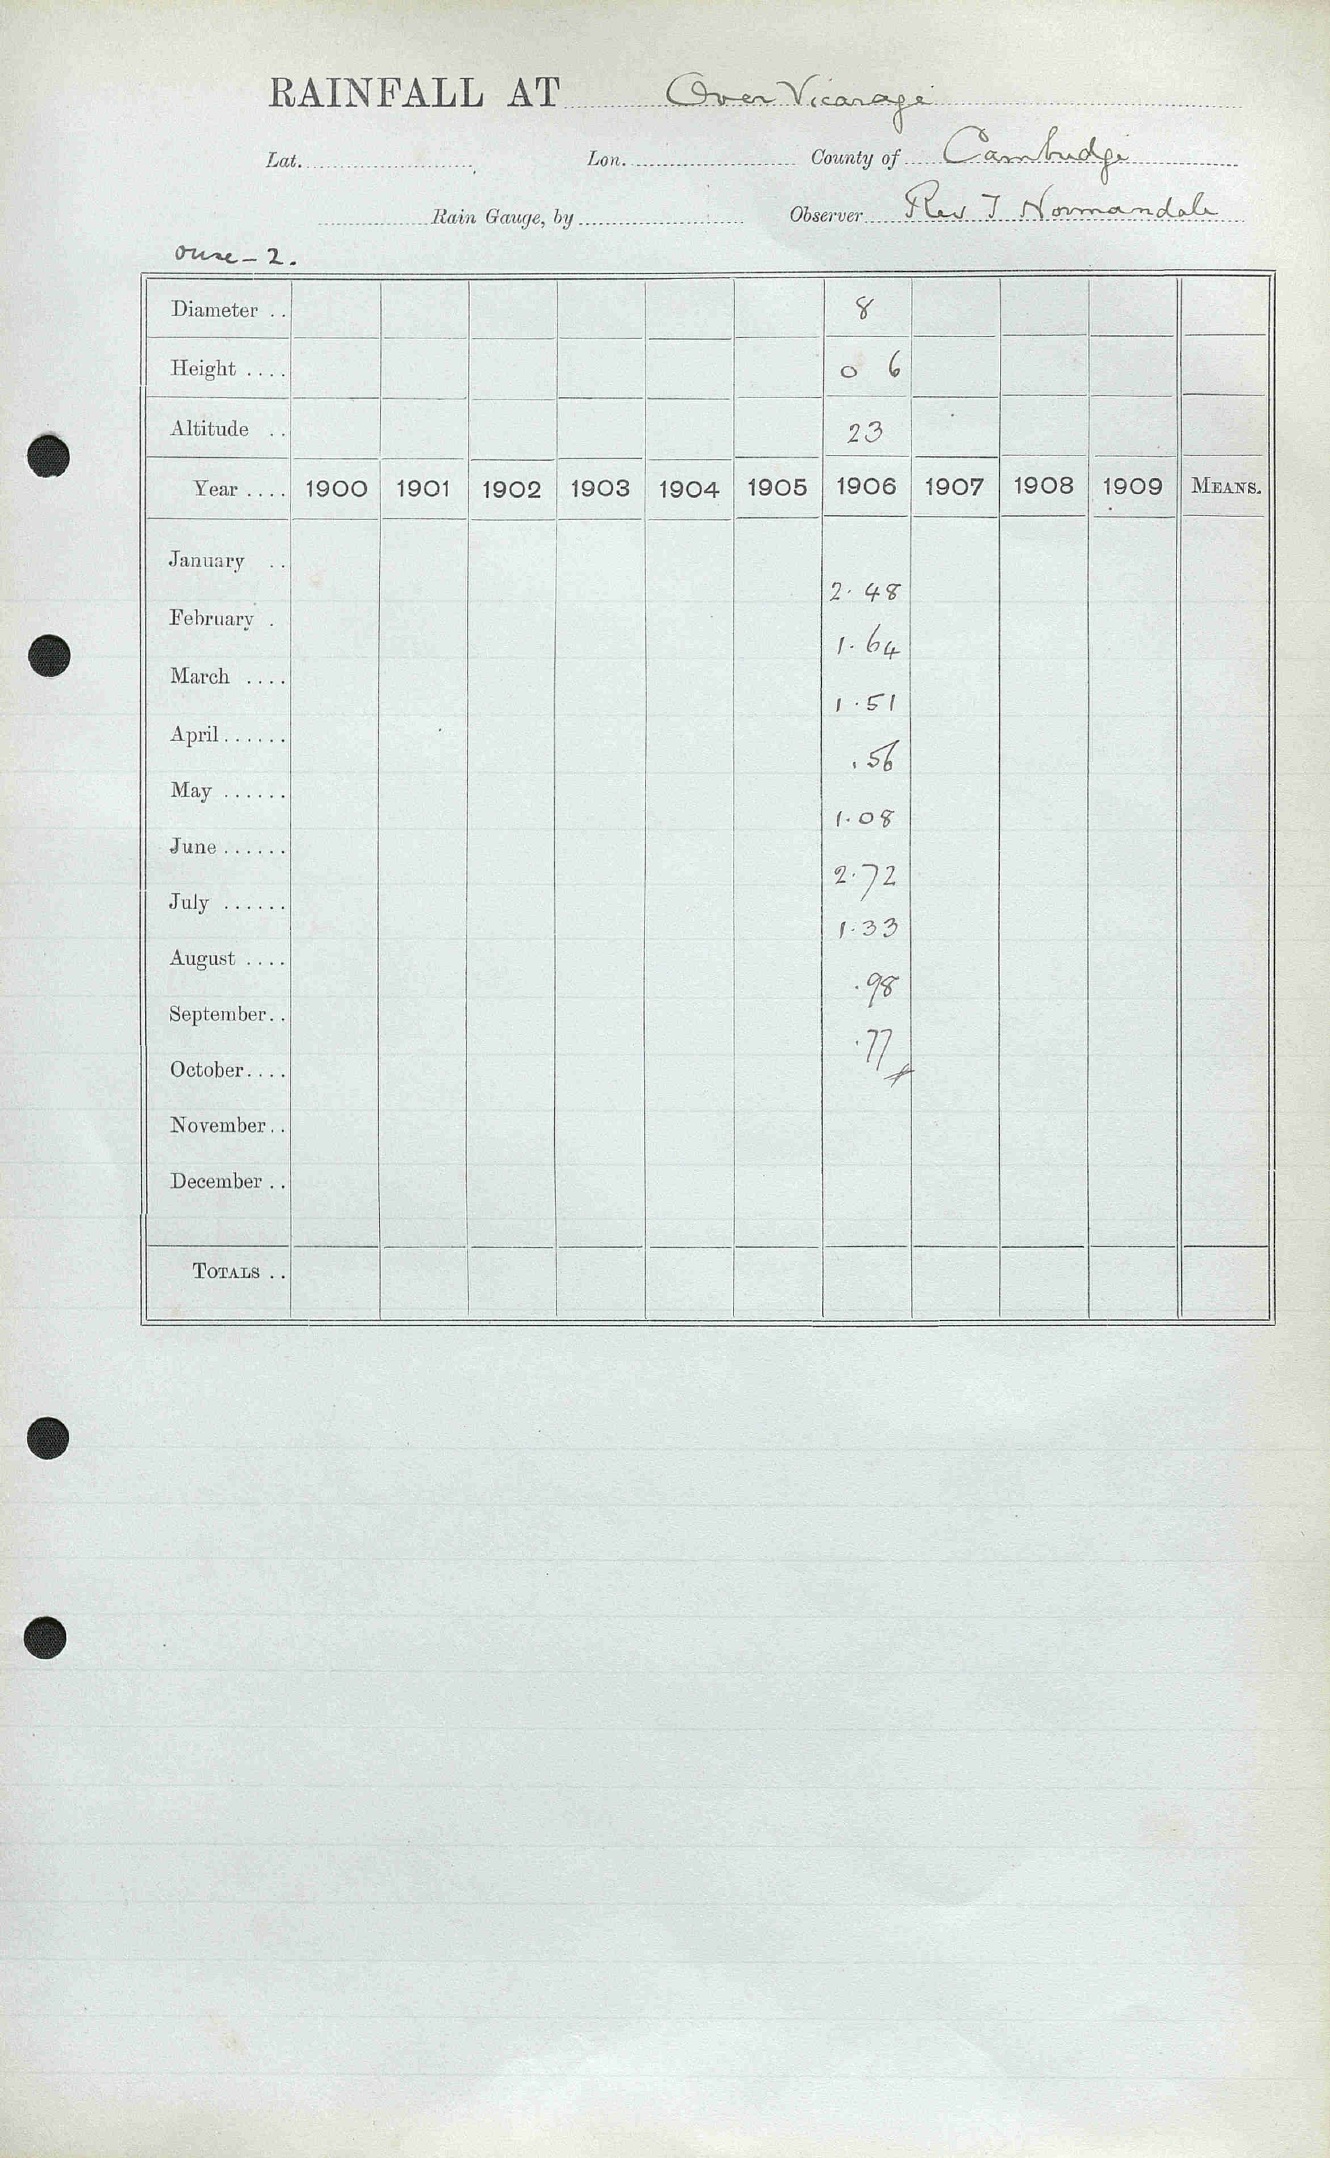 RAINFALL AT Over Vicarage
Lat. Lon. County of Cambridge
Rain Gauge, by Observer Rev T Normandale
Ouse - 2.
Diameter .. 8
Height .... 0 6
Altitude .. 23
Year .... 1900 1901 1902 1903 1904 1905 1906 1907 1908 1909 MEANS.
January ..
2.48
February .
1.64
March ....
1.51
April......
.56
May ......
1.08
June ......
2.72
July ......
1.33
August ....
.98
September..
.77
October....
November..
December ..
TOTALS ..